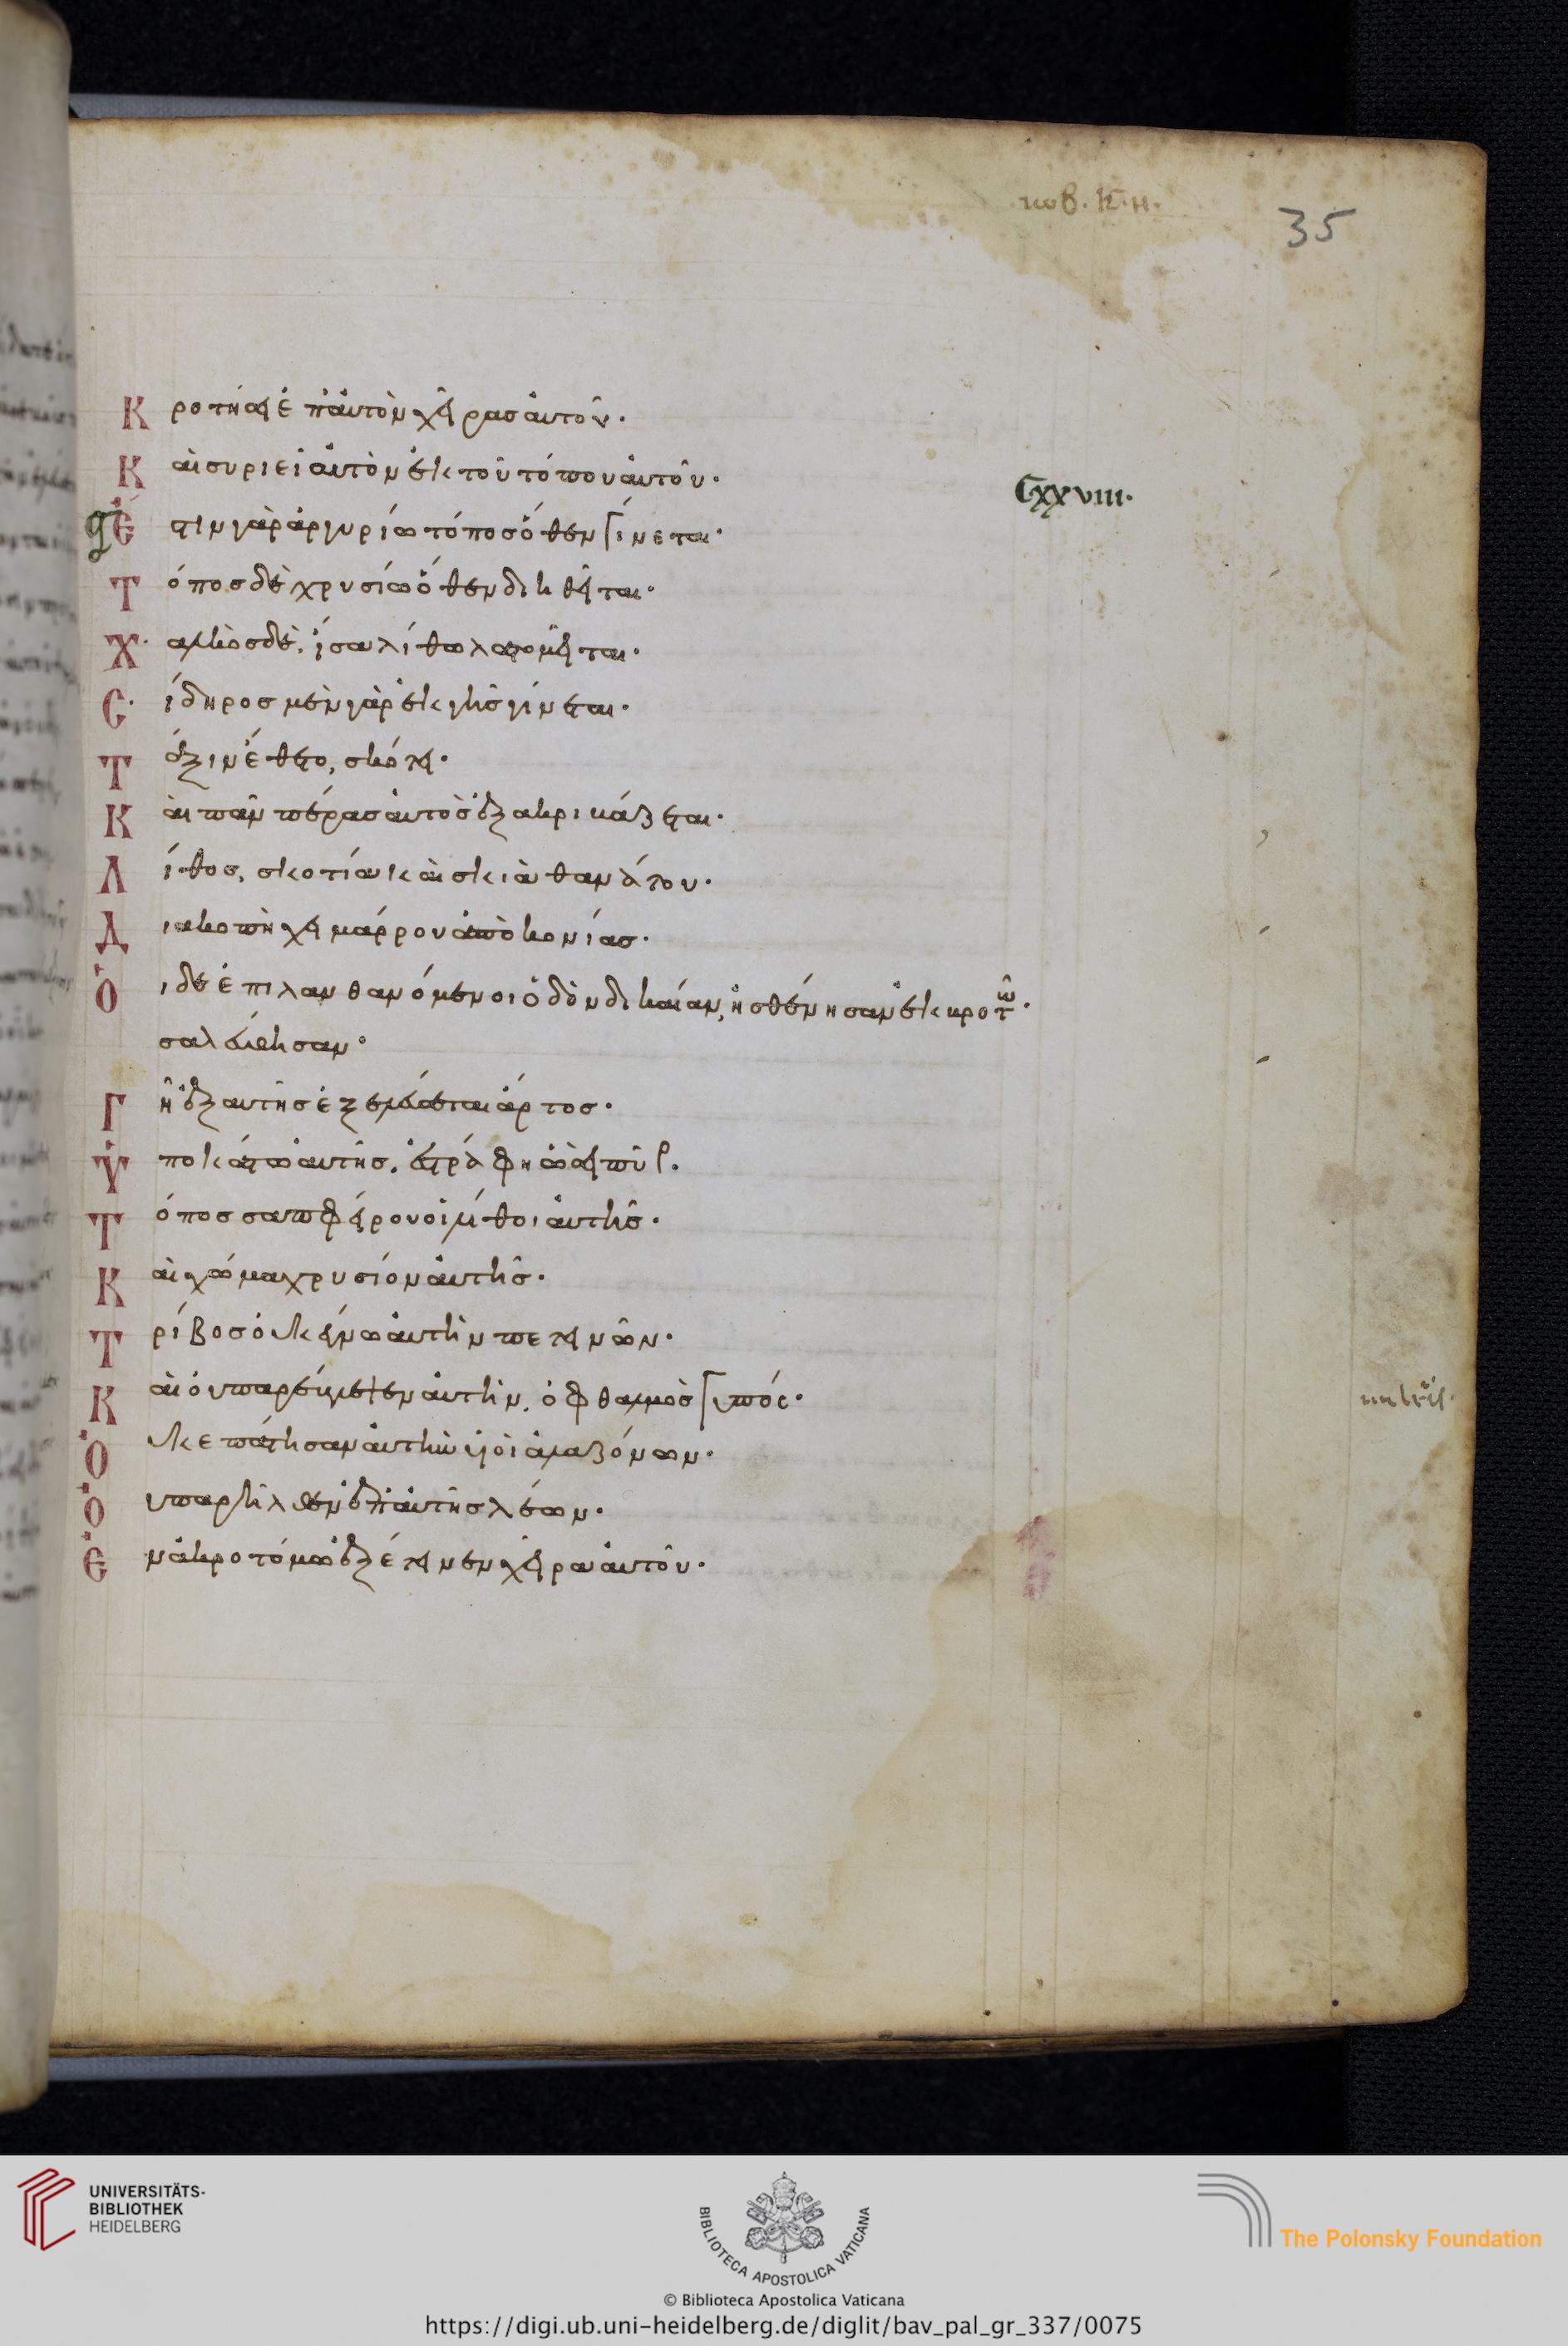 ιωβ. κ.η.
35
Κροτήσει ἐπ' αὐτὸν χεῖρας αὐτοῦ.
Καὶ συριεῖ αὐτὸν ἐκ τοῦ τόπου αὐτοῦ.
Cxxviii.
Ἔστιν γὰρ ἀργυρίω τόπος ὅθεν γίνεται.
Τόπος δὲ χρυσίω ὅθεν διηθεῖται.
Χαλκὸς δὲ, ἴσα λίθω λατομεῖται.
Σίδηρος μὲν γὰρ ἐκ γῆς γίνεται.
Τάξιν ἔθετο, σκότει.
Καὶ πᾶν πέρας αὐτὸς ἐξακριβάζεται.
Λίθος, σκοτία καὶ σκιὰ θανάτου.
Διακοπὴ χειμάρρου ἀπὸ κονίας.
Οἱ δὲ ἐπιλανθανόμενοι ὁδὸν δικαίαν, ἠσθένησαν ἐκ βροτῶ.
σαλεύθησαν.
Γῆ ἐξ αὐτῆς ἐξελεύσεται ἄρτος.
Ὑποκάτω αὐτῆς, ἐστράφη ὡσεὶ πῦρ.
Τόπος σαπφείρου οἱ λίθοι αὐτῆς.
Καὶ χῶμα χρυσίον αὐτῆς.
Τρίβος οὐκ ἔγνω αὐτὴν πετεινῶν.
Καὶ οὐ παρέβλεψεν αὐτὴν, ὀφθαλμὸς γυπός.
Οὐκ ἐπάτησαν αὐτὴν υἱοὶ ἀλαζόνων.
Οὐ παρῆλθεν ἐπ' αὐτῆς λέων.
Ἐν ἀκροτόμω ἐξέτεινεν χεῖρα αὐτοῦ.
UNIVERSITÄTS-
BIBLIOTHEK
HEIDELBERG
BIBLIOTECA APOSTOLICA VATICANA
The Polonsky Foundation
© Biblioteca Apostolica Vaticana
https://digi.ub.uni-heidelberg.de/diglit/bav_pal_gr_337/0075